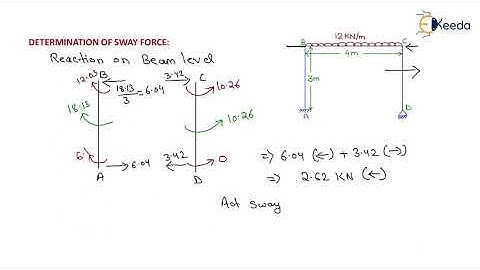 Ekeeda
DETERMINATION OF SWAY FORCE:
Reaction on Beam level
12 KN/m
B
C
4m
3m
A
D
12.03
B
3.42
C
18.13/3 = 6.04
10.26
18.13
10.26
6
6.04
3.42
0
A
D
⇒ 6.04 (←) + 3.42 (→)
⇒ 2.62 KN (←)
Act sway